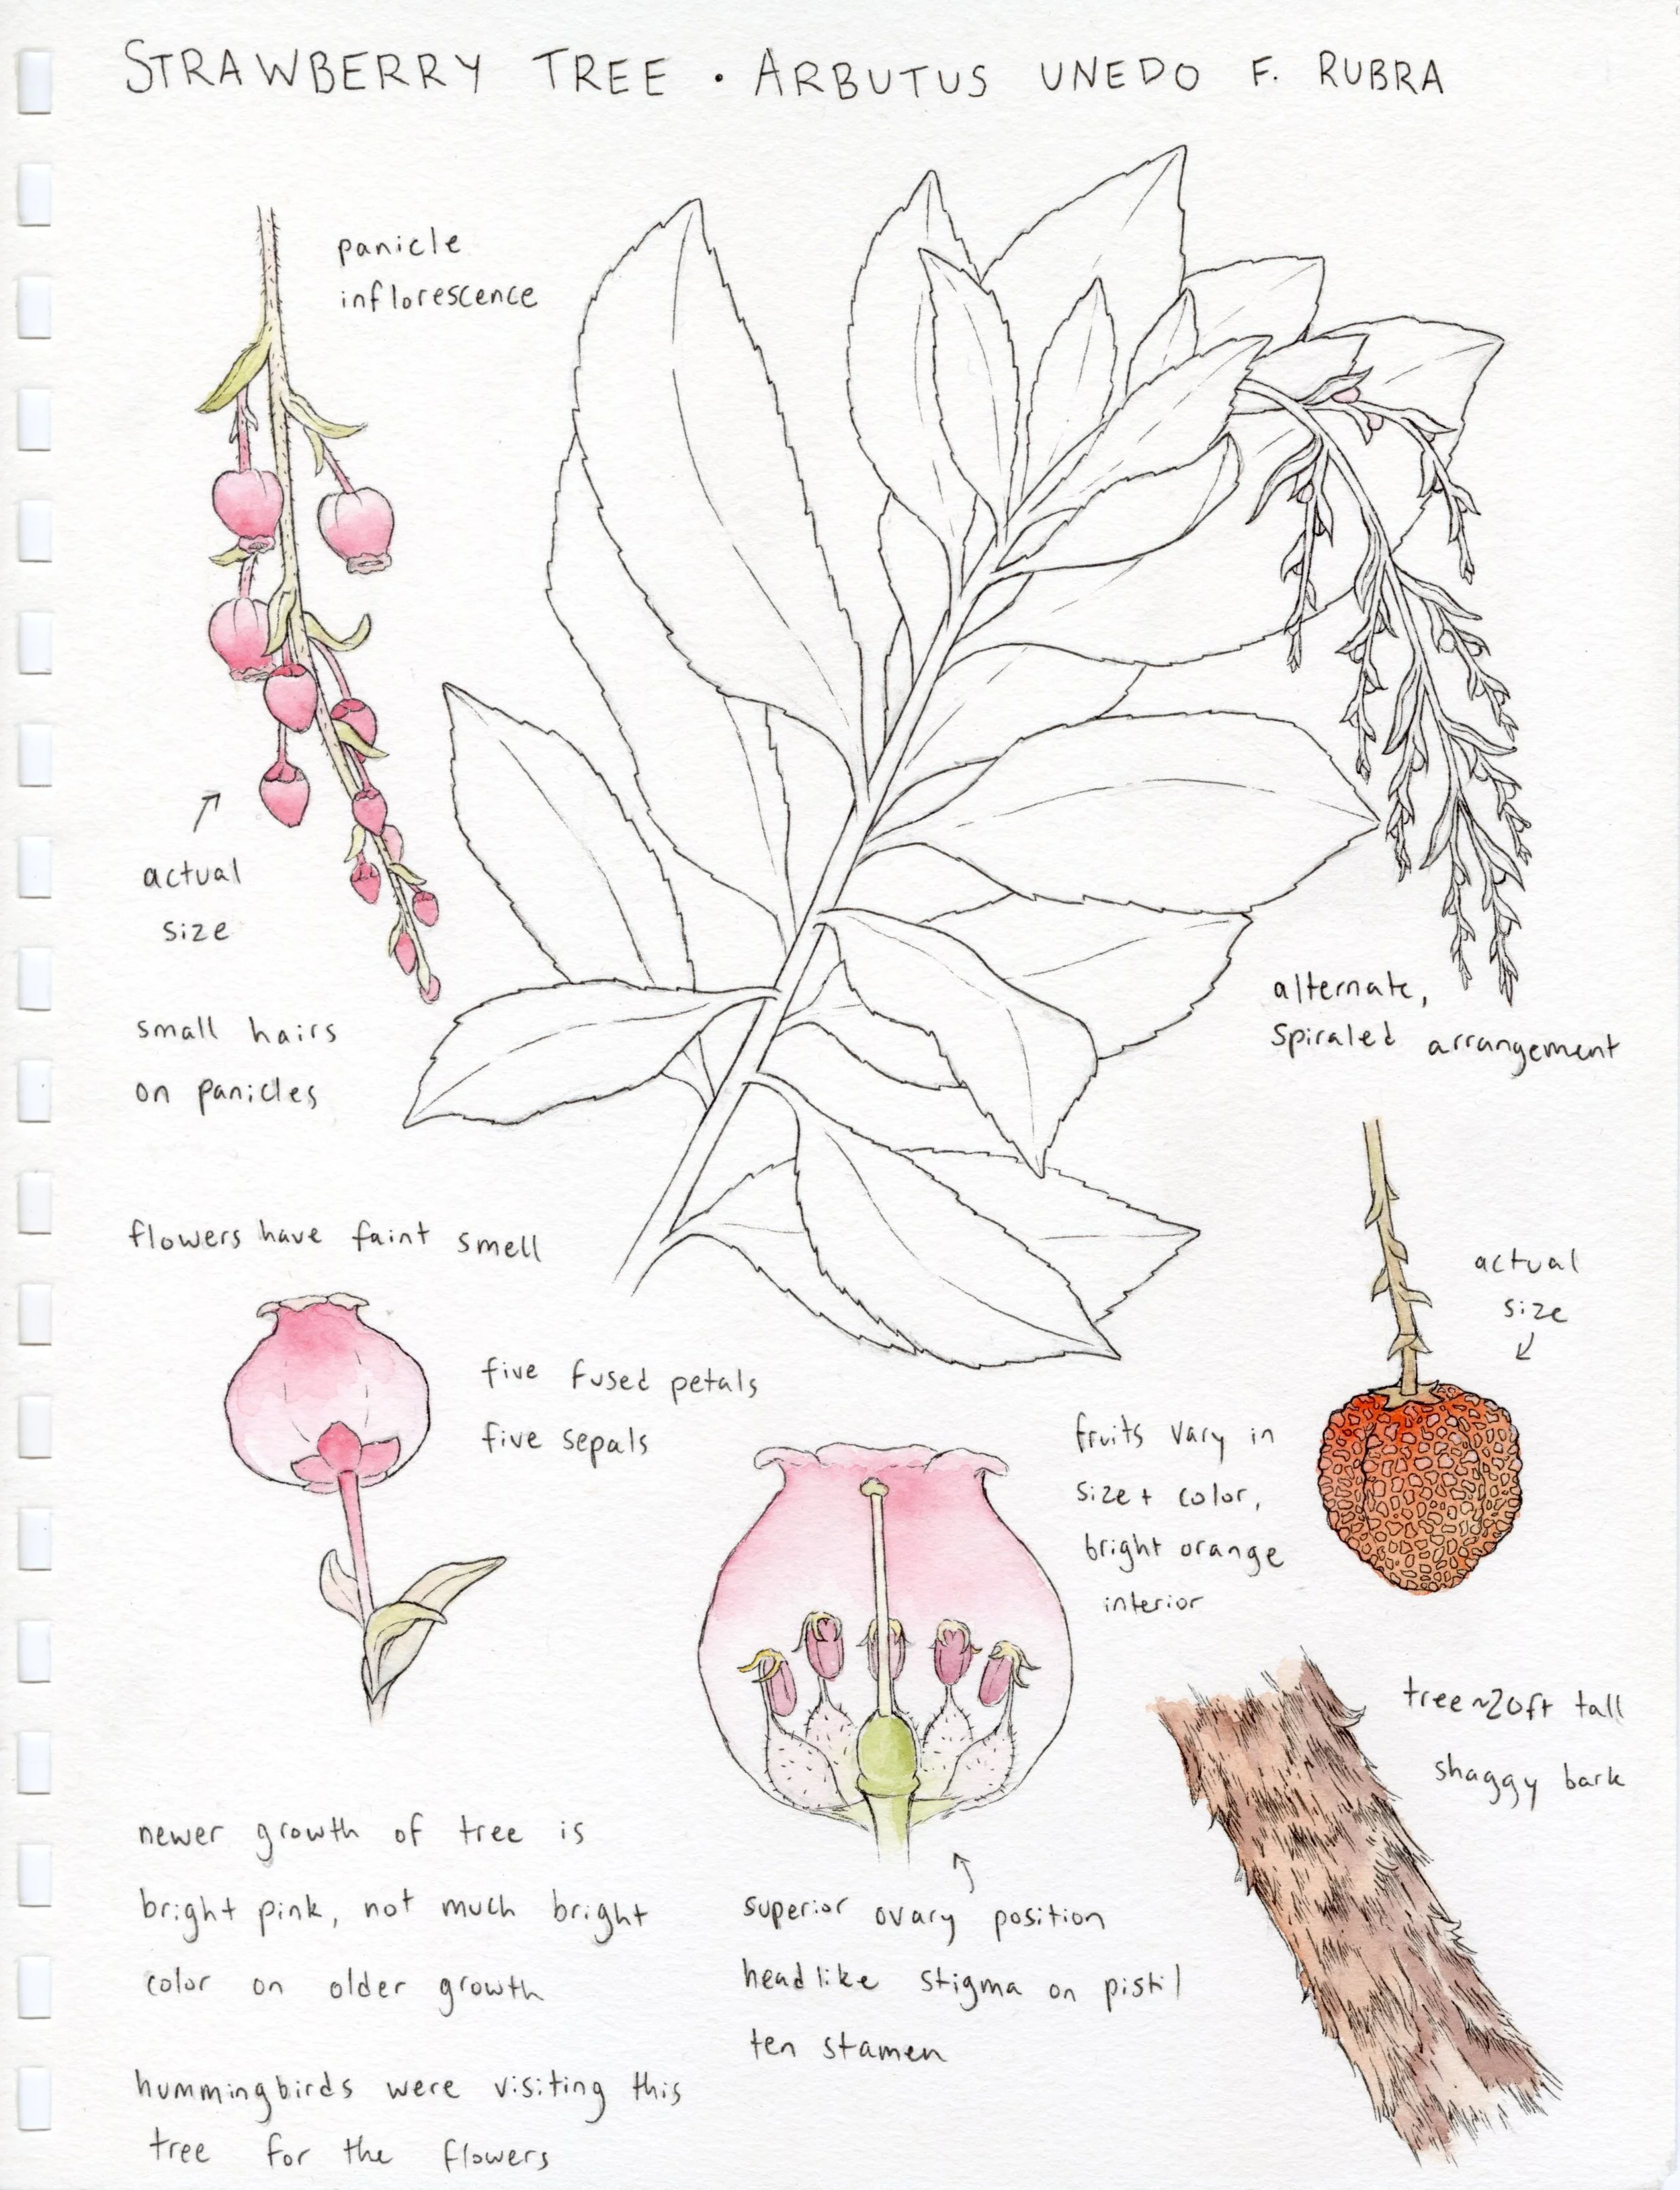 STRAWBERRY TREE · ARBUTUS UNEDO F. RUBRA
panicle
inflorescence
actual
size
small hairs
on panicles
alternate,
spiraled arrangement
flowers have faint smell
actual
size
five fused petals
five sepals
fruits vary in
size + color,
bright orange
interior
tree ~20ft tall
shaggy bark
newer growth of tree is
bright pink, not much bright
color on older growth
superior ovary position
headlike stigma on pistil
ten stamen
hummingbirds were visiting this
tree for the flowers